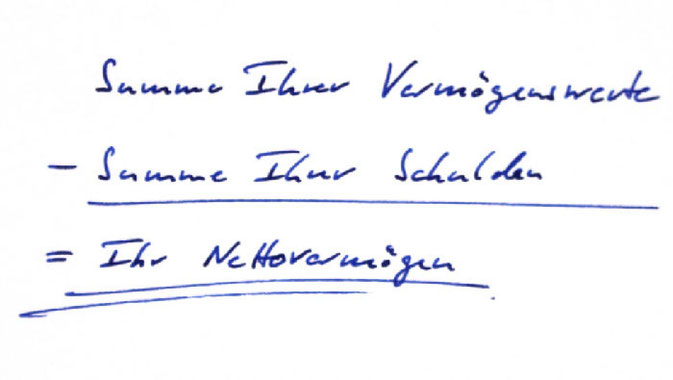 Summe Ihrer Vermögenswerte
- Summe Ihrer Schulden
= Ihr Nettovermögen